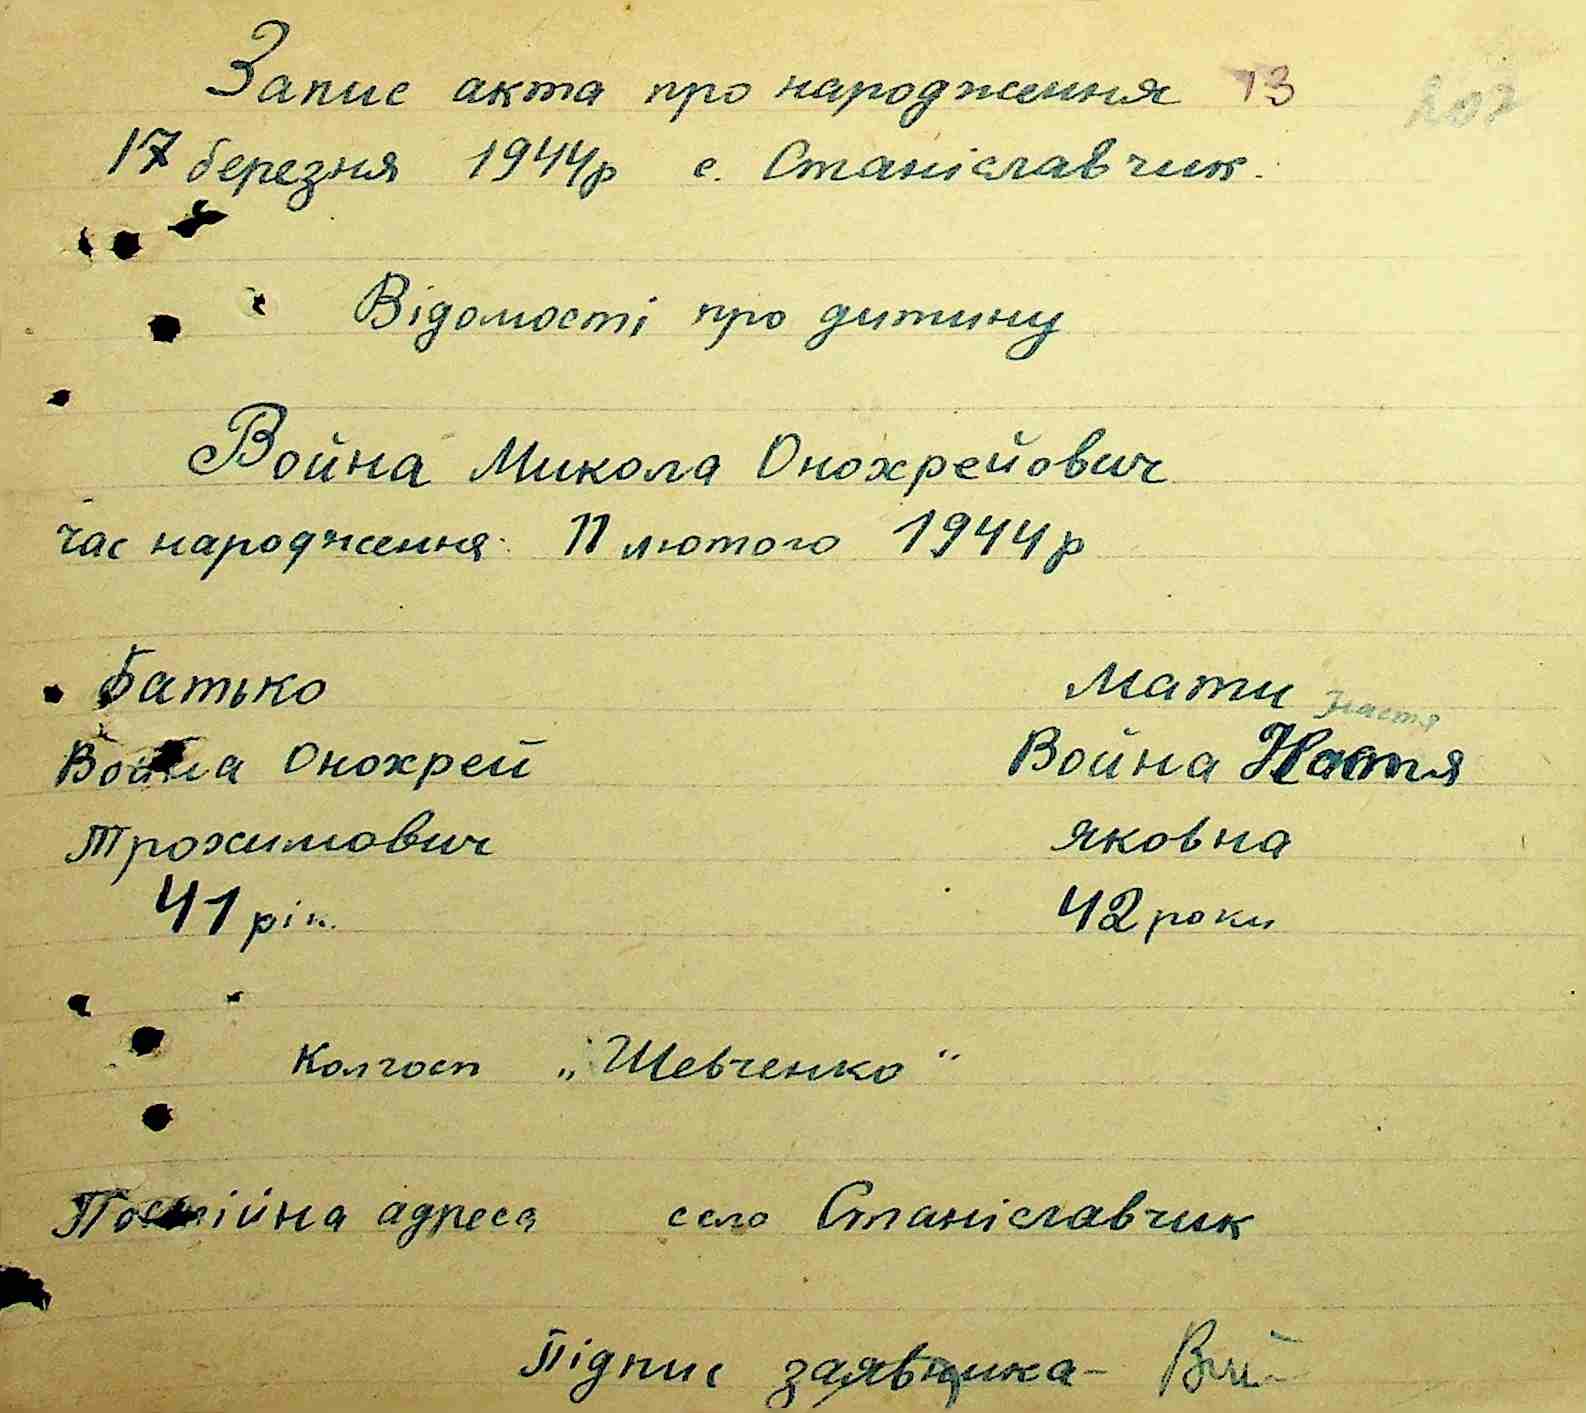 Запис акта про народження 13 207
17 березня 1944р с. Станіславчик.
Відомості про дитину
Война Микола Онохрейович
час народження: 11 лютого 1944р
Батько Мати Настя
Война Онохрей Война Настя
Трохимович Яковна
41 рік 42 роки
Колгосп „Шевченко“
Постійна адреса село Станіславчик
Підпис заявщика-